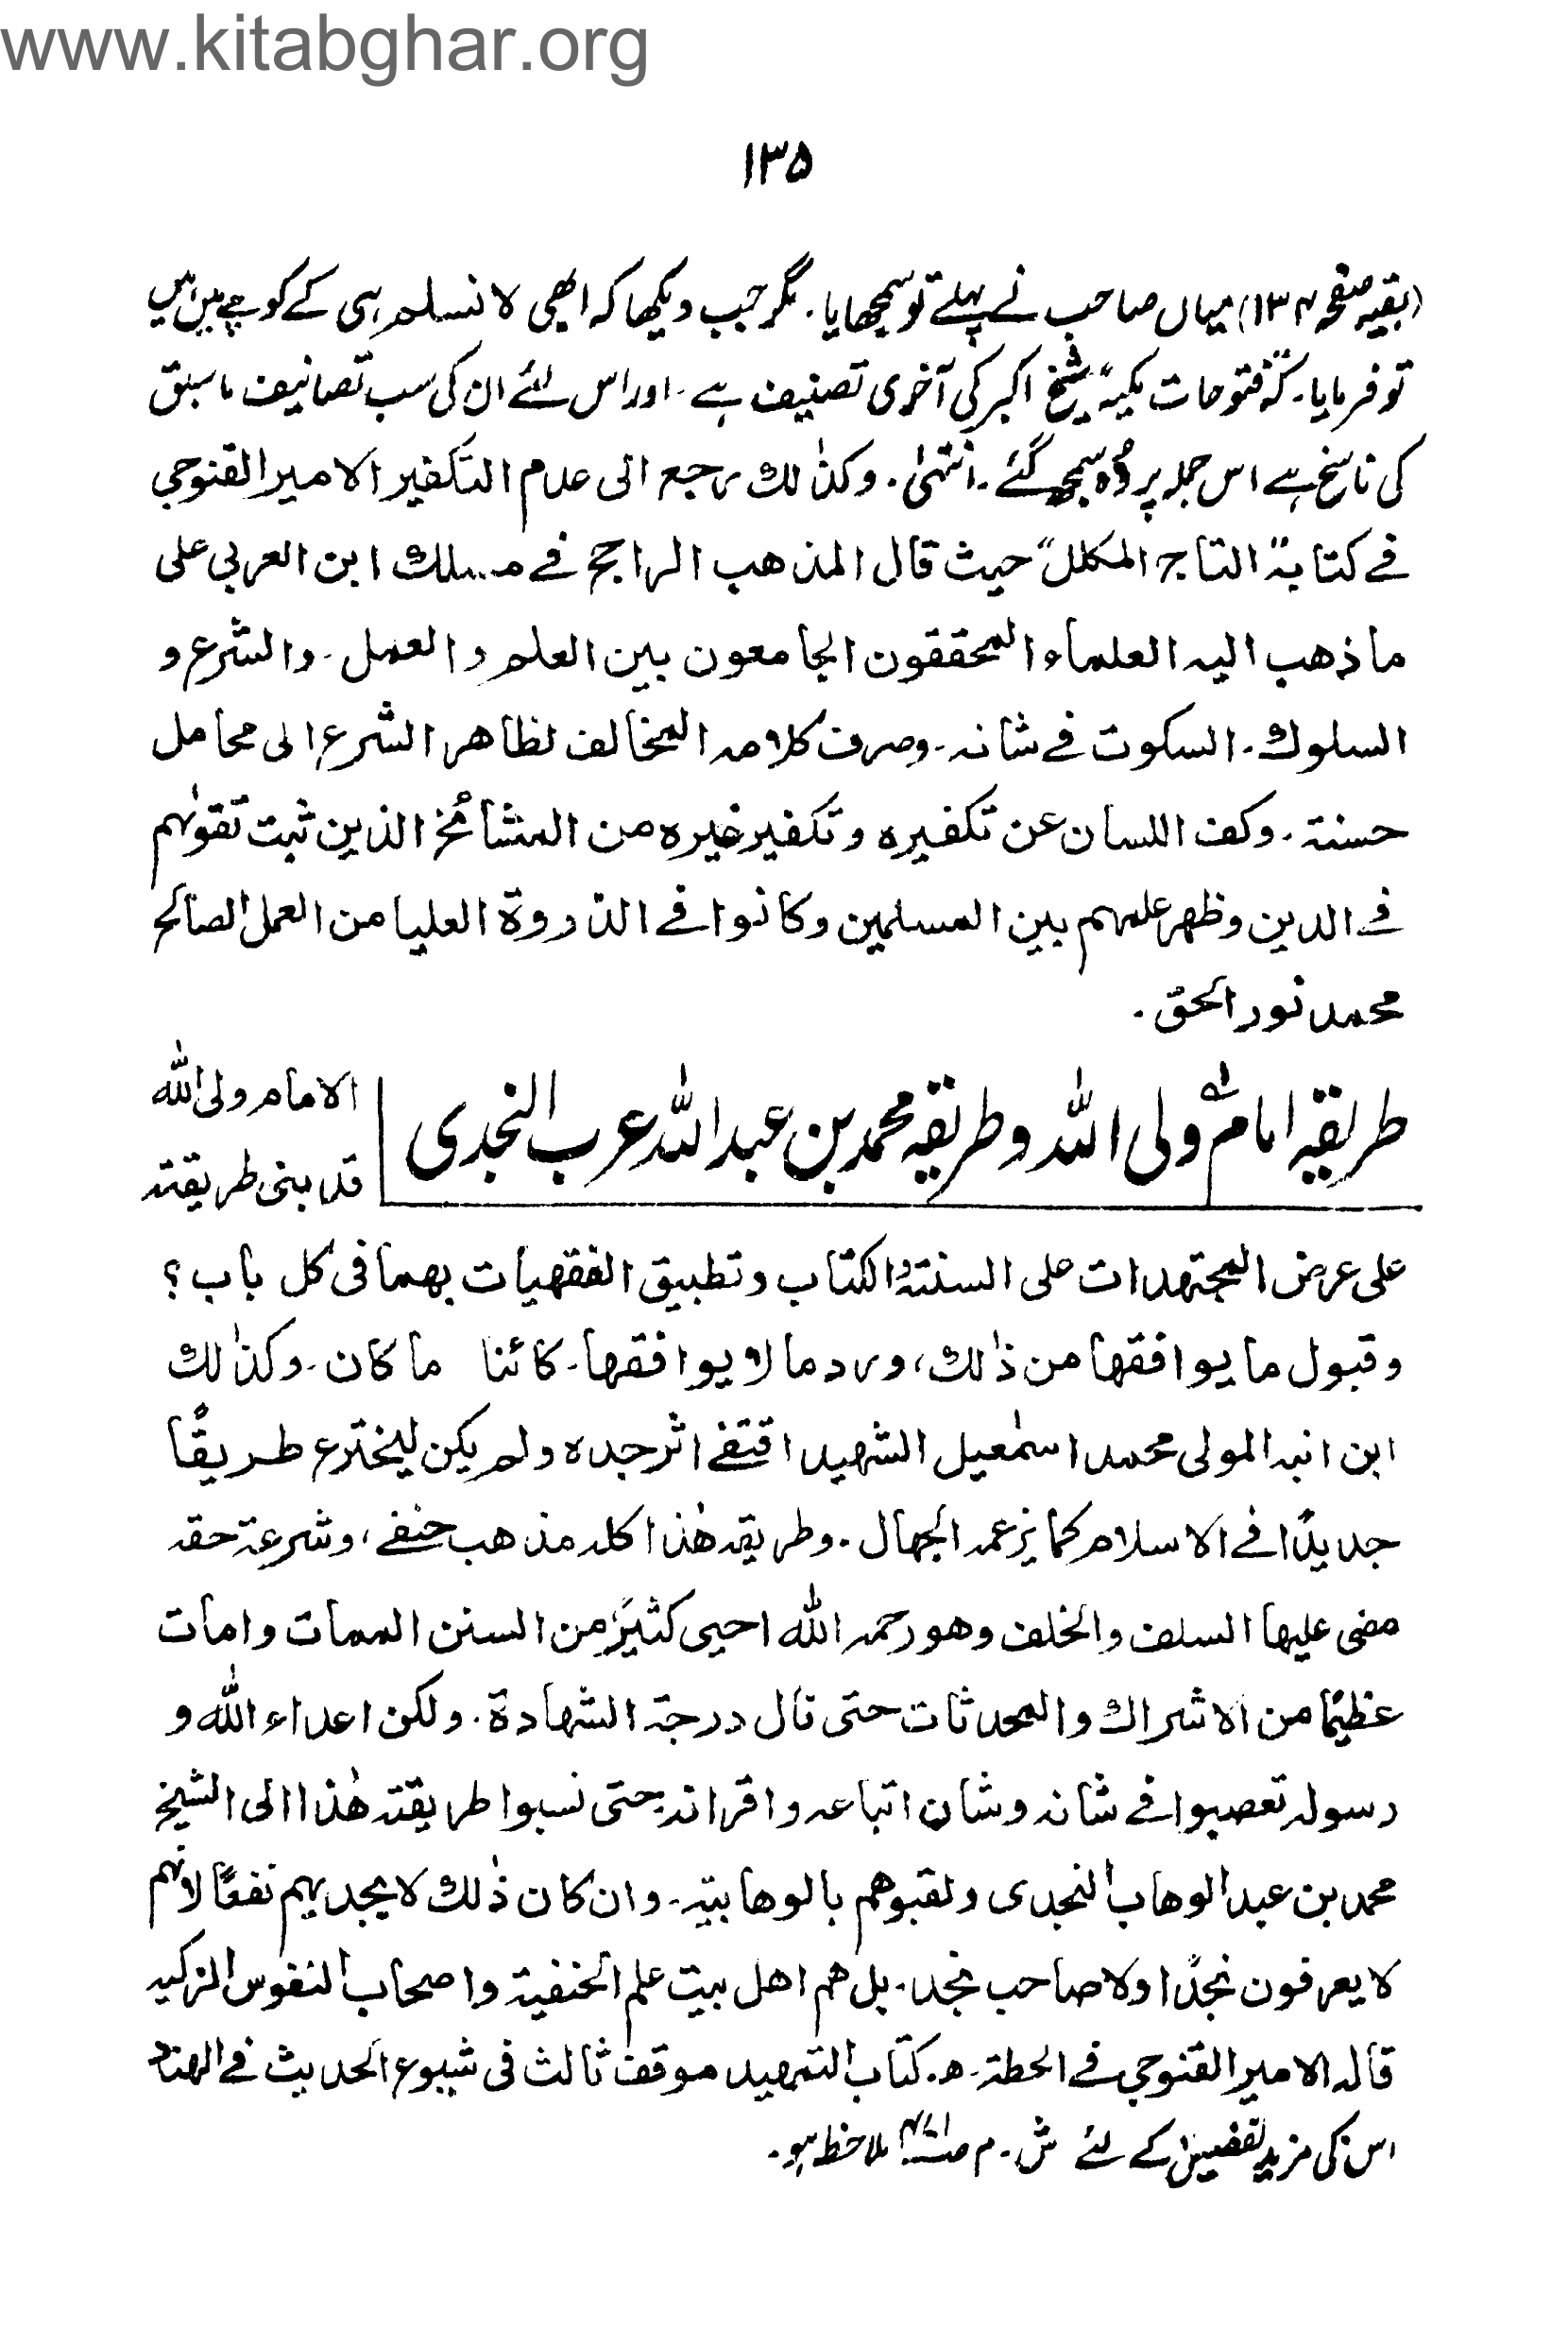 www.kitabghar.org
۱۳۵
(بقیہ صفحہ ۱۳۴) میاں صاحب نے پہلے تو سمجھایا۔ مگر جب دیکھا کہ ابھی لا نسلم ہی کے کوچے میں ہیں
تو فرمایا۔ کہ "فتوحات مکیہ" شیخ اکبر کی آخری تصنیف ہے۔ اور اس لئے ان کی سب تصانیف ما سبق
کی ناسخ ہے اس جملہ پر وُہ سمجھ گئے۔ انتہیٰ۔ وکذٰلک رجع الی عدم التکفیر الامیر القنوجی
فے کتابہ "التاج المکلل" حیث قال المذھب الراجح فے مسلک ابن العربی علی
ما ذھب الیہ العلماء المحققون الجامعون بین العلم والعمل۔ والشرع و
السلوک۔ السکوت فے شانہ۔ وصرف کلامہ المخالف لظاھر الشرع الی محامل
حسنۃ۔ وکف اللسان عن تکفیرہ وتکفیر غیرہ من المشائخ الذین ثبت تقوٰہم
فے الدین وظھر علمہم بین المسلمین وکانوا فے الذروۃ العلیا من العمل الصالح
محمد نور الحق۔
طریقہ امامؒ ولی اللہ و طریقہ محمد بن عبد اللہ عرب النجدی
الامام ولی اللہ
قد بنی طریقتہ
علی عرض المجتہدات علی السنتہ والکتاب وتطبیق الفقھیات بھما فی کل باب؟
وقبول ما یوافقھا من ذٰلک، ورد ما لا یوافقھا۔ کائنا ما کان۔ وکذٰلک
ابن انبہ المولی محمد اسمٰعیل الشھید اقتفے اثر جدہ ولم یکن لیخترع طریقًا
جدیدًا فے الاسلام کما یزعمہ الجھال۔ وطریقہ ھٰذا کلہ مذھب حنفے، وشرعۃ حقہ
مضی علیھا السلف والخلف وھو رحمہ اللہ احیی کثیرً من السنن الممات وامات
عظیمًا من الاشراک والمحدثات حتی نال درجۃ الشھادۃ۔ ولکن اعداء اللہ و
رسولہ تعصبوا فے شانہ وشان اتباعہ واقرانہ حتی نسبوا طریقتہ ھٰذا الی الشیخ
محمد بن عبد الوھاب النجدی ولقبوھم بالوھابیۃ۔ وان کان ذٰلک لا یجدیہم نفعًا لانہم
لا یعرفون نجدًا ولا صاحب نجد۔ بل ھم اھل بیت علم الحنفیۃ واصحاب النفوس المزکیہ
قالہ الامیر القنوجی فے الحطۃ۔ ھ۔ کتاب التمہید موقف ثالث فی شیوع الحدیث فے الھند
اس کی مزید تفصیل کے لئے ش۔ م ملاحظہ ہو۔